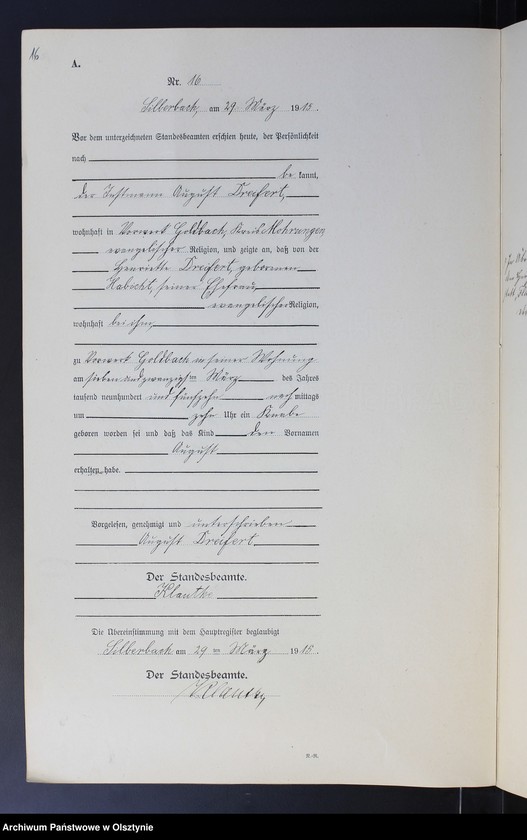 16
A.
Nr. 16
Silberbach, am 29 März 1915.
Vor dem unterzeichneten Standesbeamten erschien heute, der Persönlichkeit
nach
be kannt,
der Instmann August Dreifert,
wohnhaft in Vorwerk Goldbach, Kreis Mohrungen
evangelischer Religion, und zeigte an, daß von der
Henriette Dreifert, geborenen
Habicht, seiner Ehefrau,
evangelischer Religion,
wohnhaft bei ihm,
zu Vorwerk Goldbach in seiner Wohnung
am sieben und zwanzigsten März des Jahres
tausend neunhundert und fünfzehn nach mittags
um zehn Uhr ein Knabe
geboren worden sei und daß das Kind den Vornamen
August
erhalten habe.
Vorgelesen, genehmigt und unterschrieben
August Dreifert
Der Standesbeamte.
Klautke
Die Übereinstimmung mit dem Hauptregister beglaubigt
Silberbach am 29 ten März 1915.
Der Standesbeamte.
Klautke
Archiwum Państwowe w Olsztynie